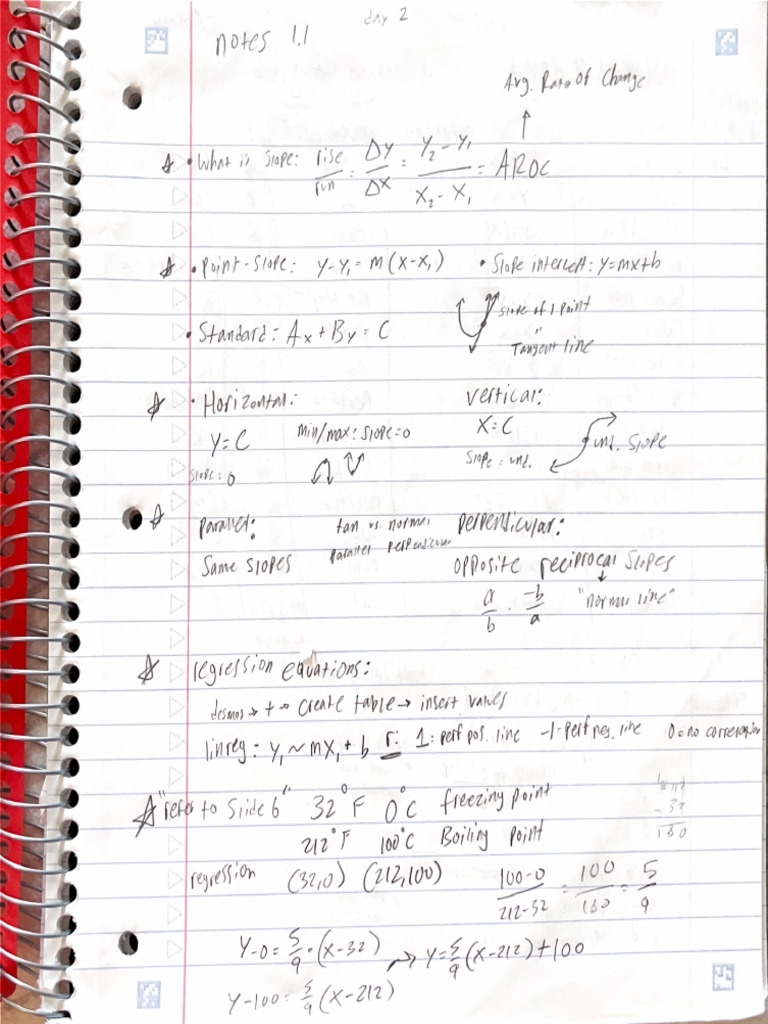 day 2
notes 1.1
Avg. Rate Of Change
• What is slope: rise/run = Δy/Δx = Y₂-Y₁/X₂-X₁ = AROC
• Point-Slope: y-y₁=m(x-x₁) • Slope intercept: y=mx+b
slope of 1 point
"
Tangent line
• Standard: Ax+By=C
• Horizontal: vertical:
Y=C min/max: slope=0 X=C und. slope
slope=0 slope=und.
parallel: tan vs. normal perpendicular:
parallel perpendicular
Same slopes opposite reciprocal slopes
a/b · -b/a "normal line"
regression equations:
desmos → + → create table → insert values
linreg = y₁~mx₁+b r: 1: perf pos. line -1-perf neg. line 0=no correlation
"refer to Slide 6" 32°F 0°C freezing point
212°F 100°C Boiling point
-32
180
regression (32,0) (212,100) 100-0/212-32 = 100/180 = 5/9
Y-0=5/9·(x-32) → Y=5/9(x-212)+100
Y-100=5/9(x-212)